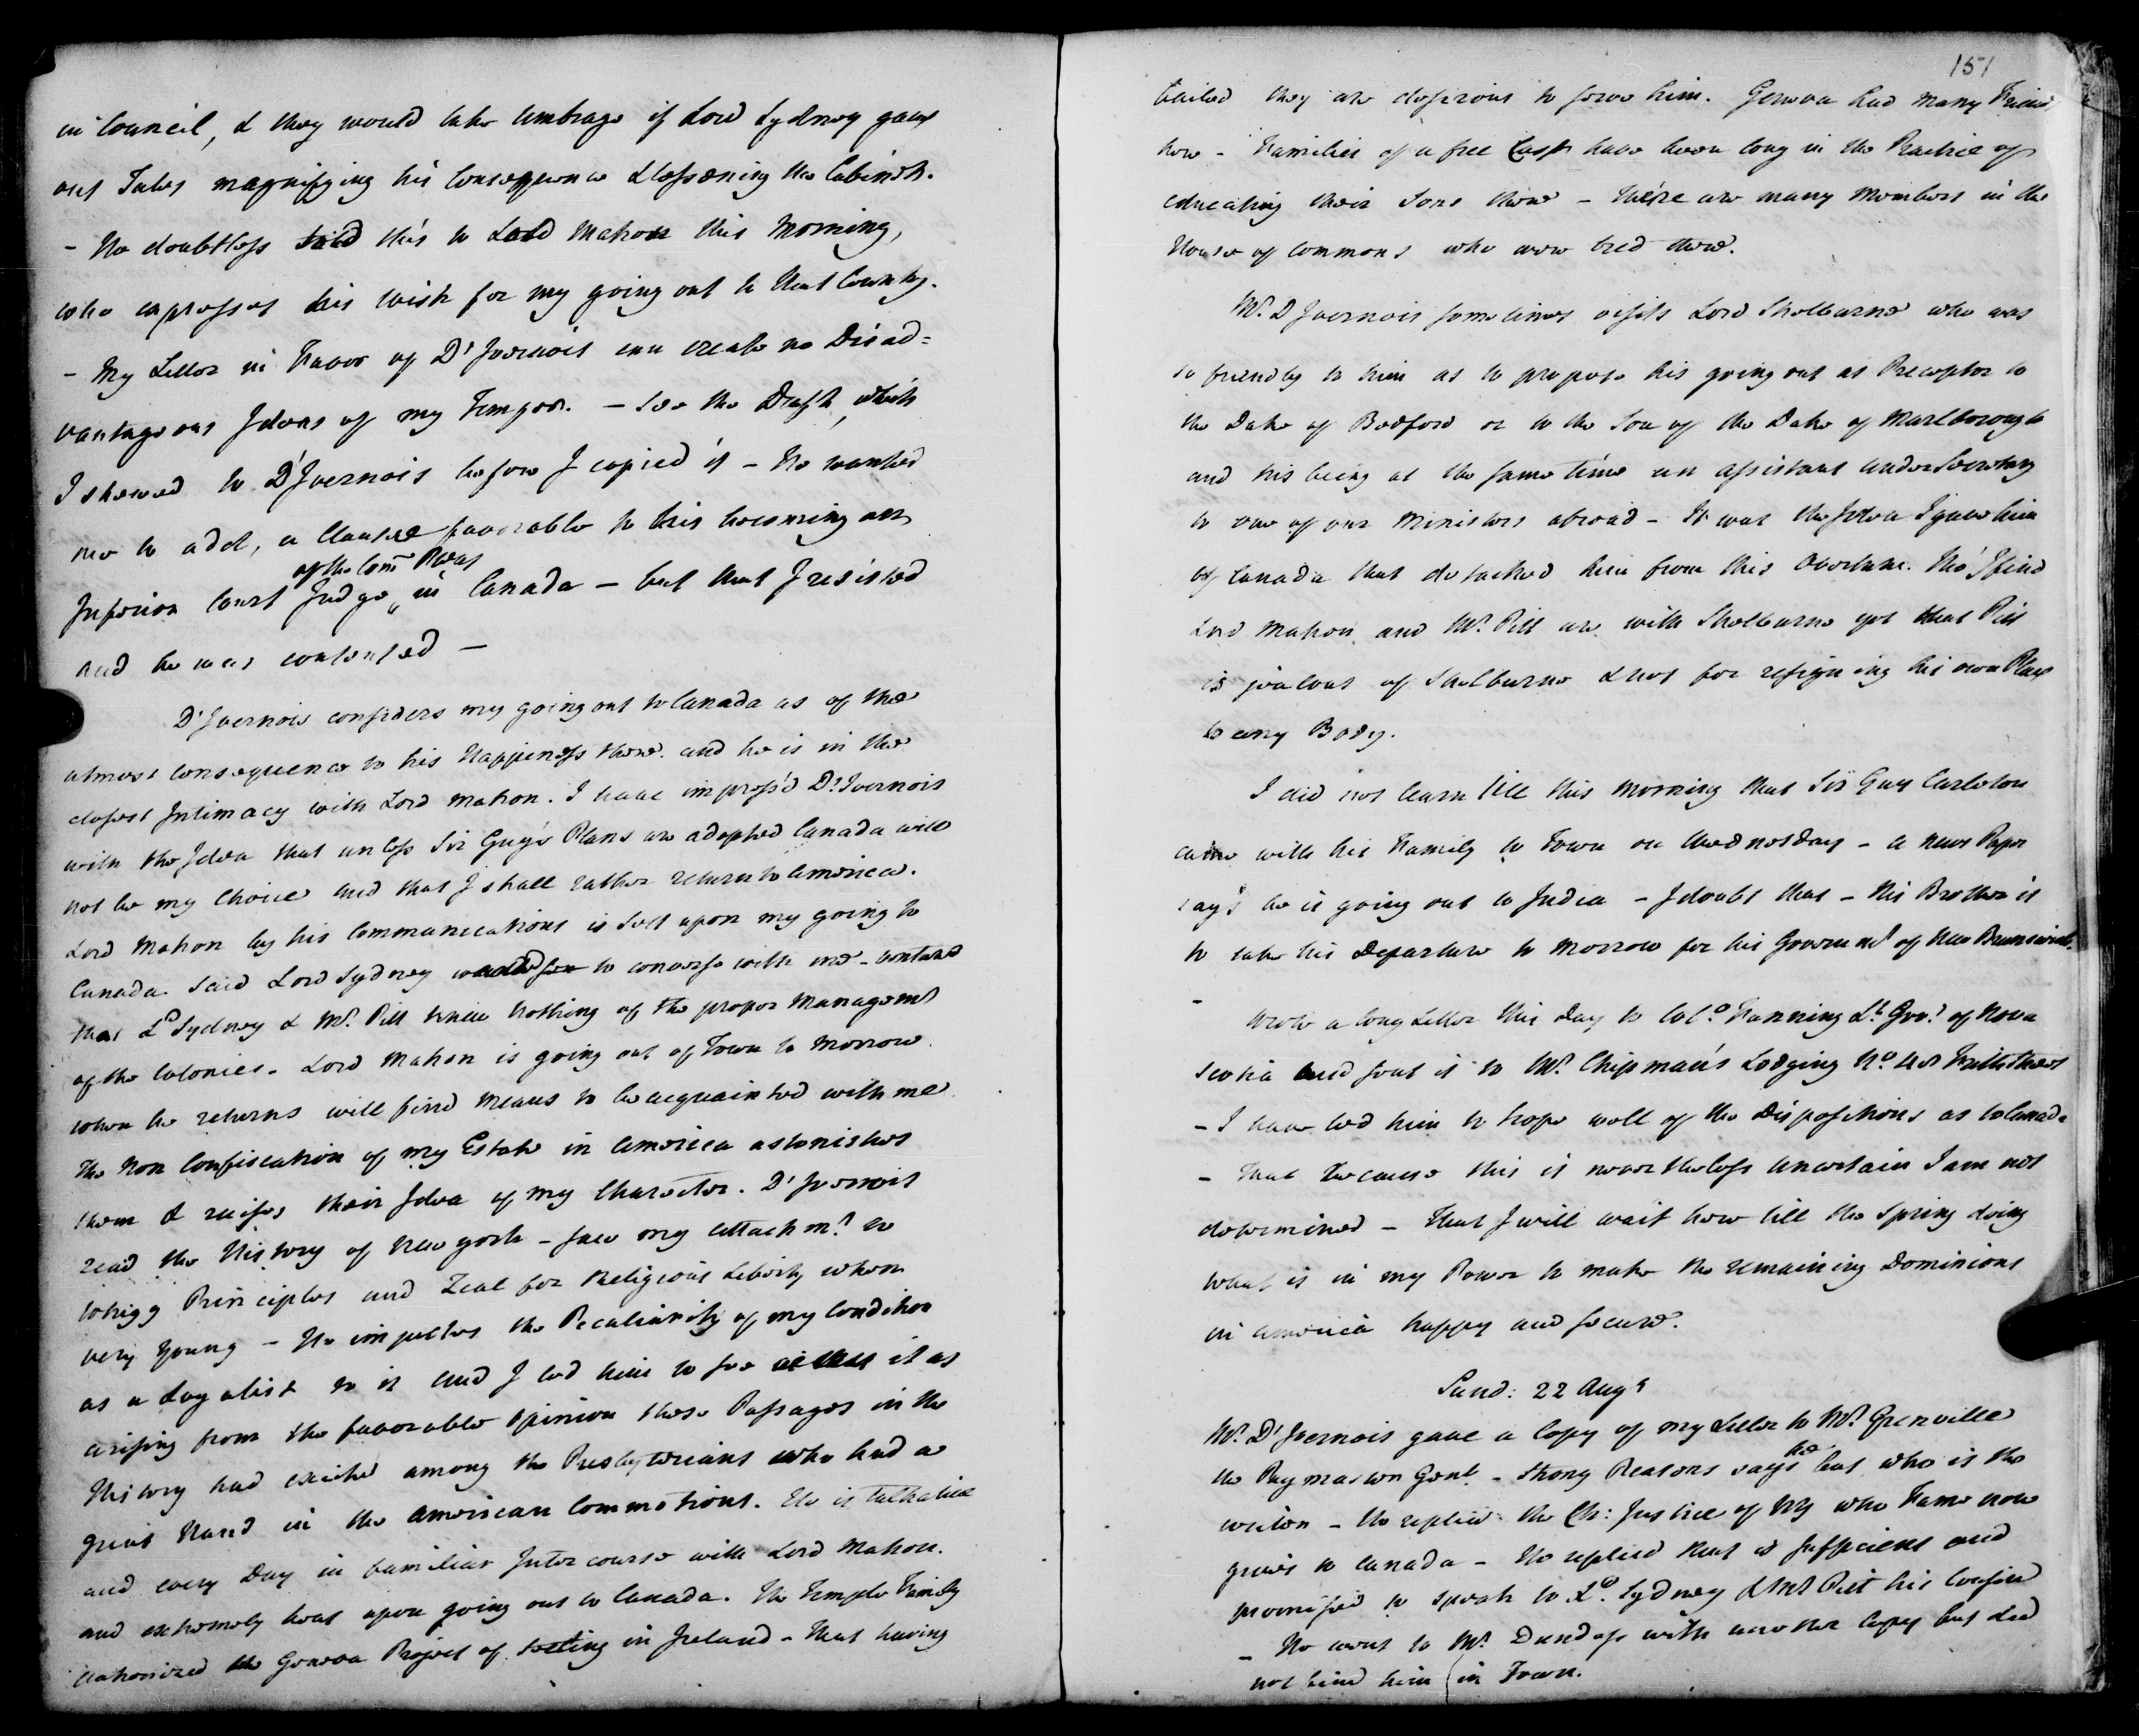 in Council, & they would take Umbrage if Lord Sydney gave
out Tales magnifying his Consequence & lessening the Cabinet.
- He doubtless told this to Lord Mahon this Morning,
who expresses his wish for my going out to that Country.
- My Letter in Favor of D'Ivernois can create no Disad=
vantageous Ideas of my Temper. - See the Draft, which
I shewed to D'Ivernois before I copied it - He wanted
me to add, a Clause favorable to his becoming an
of the Com̃ Pleas
Inferior Court Judge in Canada - but that I resisted
and he was contented -
D'Ivernois considers my going out to Canada as of the
utmost Consequence to his Happiness there. and he is in the
closest Intimacy with Lord Mahon. I have impress'd D'Ivernois
with the Idea that unless Sir Guy's Plans are adopted Canada will
not be my Choice and that I shall rather return to America.
Lord Mahon by his Communications is Sett upon my going to
Canada. Said Lord Sydney to converse with me - ventured
that Ld Sydney & Mr. Pitt knew Nothing of the proper Managemt
of the Colonies. Lord Mahon is going out of Town to Morrow.
when he returns will find Means to be acquainted with me.
The Non Confiscation of my Estate in America astonishes
them & raises their Idea of my Character. D'Ivernois
read the History of New York - saw my attachmt. to
Whigg Principles and Zeal for Religious Liberty when
very young - He imputes the Peculiarity of my Condition
as a Loyalist to it and I led him to see it as
arising from the favorable opinion those Passages in the
History had excited among the Presbyterians who had a
great Hand in the American Commotions. He is talkative
and every Day in familiar Intercourse with Lord Mahon.
and extremely bent upon going out to Canada. The Temple Family
patronized the Geneva Project of setling in Ireland - that having
151
failed they are desirous to serve him. Geneva had many Friends
here - Families of a free Cast have been long in the Practice of
educating their Sons there - there are many Members in the
House of Commons who were bred there.
Mr. D'Ivernois sometimes visits Lord Shelburne who was
so friendly to him as to propose his going out as Preceptor to
the Duke of Bedford or to the Son of the Duke of Marlborough
and his being at the same time an assistant under Secretary
to one of our Ministers abroad - It was the Idea I gave him
of Canada that detached him from this Overture. Tho' I find
Lord Mahon and Mr. Pitt are with Shelburne yet that Pitt
is jealous of Shelburne & not for resigning his own Place
to any Body.
I did not learn till this Morning that Sir Guy Carleton
came with his Family to Town on Wednesday - a News Paper
says he is going out to India - I doubt that - His Brother is
to take his Departure to Morrow for his Governmt of New Brunswick.
-
Wrote a long Letter this Day to Colo. Fanning Lt. Govr. of Nova
Scotia and sent it to Mr. Chipman's Lodging No.
- I have led him to hope well of the Dispositions as to Canada
- That because this is nevertheless uncertain I am not
determined - That I will wait here till the Spring doing
what is in my Power to make the remaining Dominions
in America happy and secure.
Sund: 22 Augt
Mr. D'Ivernois gave a Copy of my Letter to Mr. Grenville
the Paymaster Genl. - Strong Reasons says he but who is the
writer - He replied the Ch: Justice of NY who Fame now
gives to Canada - He replied that is sufficient and
promised to speak to Ld. Sydney & Mr Pitt his Cousin
- He went to Mr. Dundass with another Copy but did
not find him in Town.